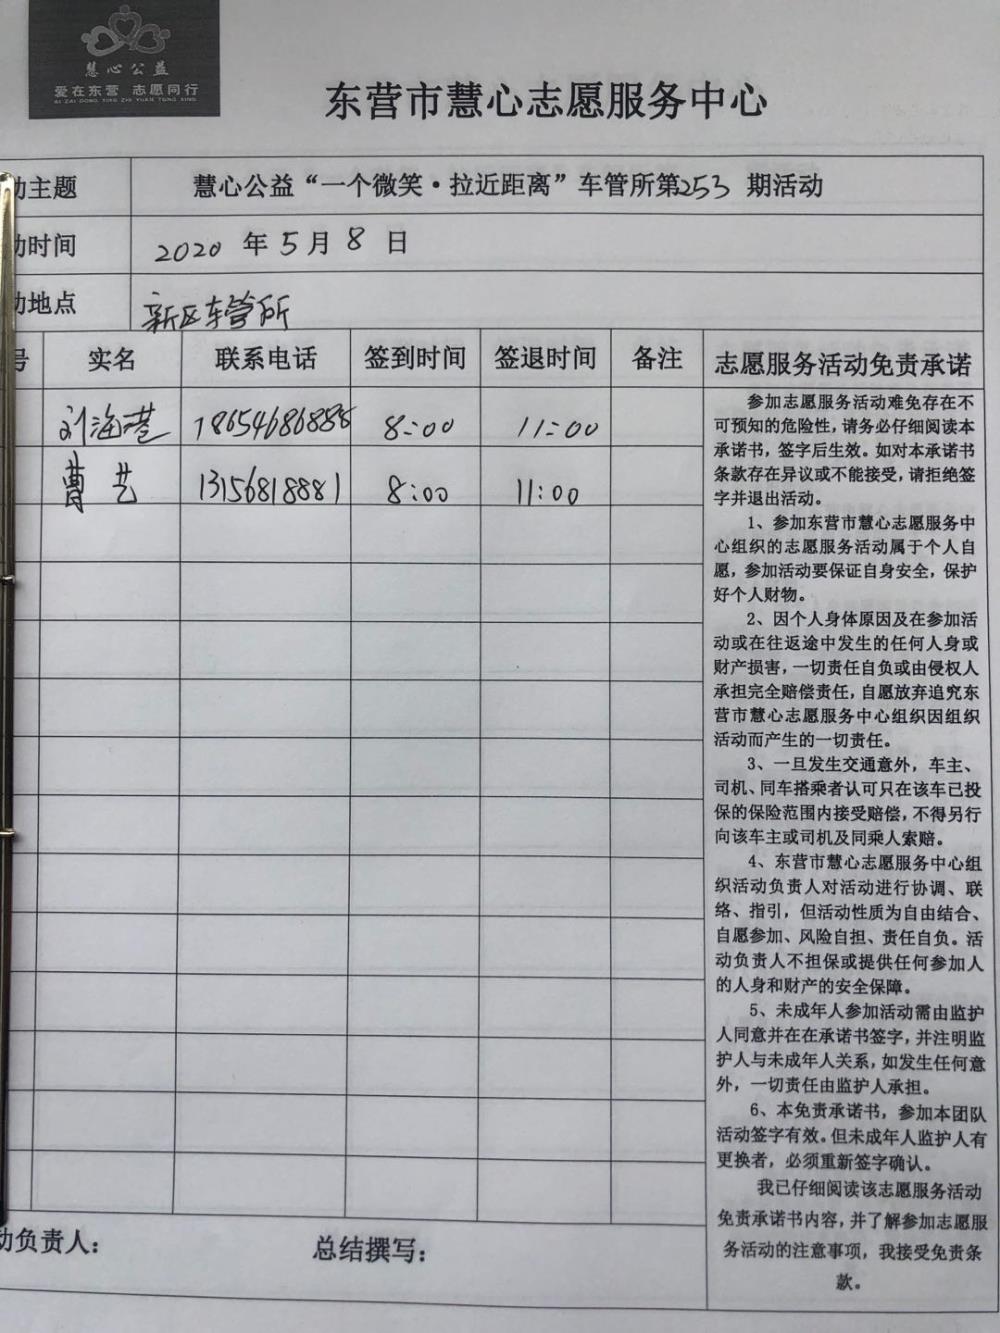 慧心公益
爱在东营 志愿同行
AI ZAI DONG YING ZHI YUAN TONG XING
东营市慧心志愿服务中心
动主题 慧心公益“一个微笑·拉近距离”车管所第253 期活动
动时间 2020 年 5 月 8 日
动地点 新区车管所
号 实名 联系电话 签到时间 签退时间 备注
刘海港 18654686888 8:00 11:00
曹艺 13156818881 8:00 11:00
志愿服务活动免责承诺
参加志愿服务活动难免存在不
可预知的危险性，请务必仔细阅读本
承诺书，签字后生效。如对本承诺书
条款存在异议或不能接受，请拒绝签
字并退出活动。
1、参加东营市慧心志愿服务中
心组织的志愿服务活动属于个人自
愿，参加活动要保证自身安全，保护
好个人财物。
2、因个人身体原因及在参加活
动或在往返途中发生的任何人身或
财产损害，一切责任自负或由侵权人
承担完全赔偿责任，自愿放弃追究东
营市慧心志愿服务中心组织因组织
活动而产生的一切责任。
3、一旦发生交通意外，车主、
司机、同车搭乘者认可只在该车已投
保的保险范围内接受赔偿，不得另行
向该车主或司机及同乘人索赔。
4、东营市慧心志愿服务中心组
织活动负责人对活动进行协调、联
络、指引，但活动性质为自由结合、
自愿参加、风险自担、责任自负。活
动负责人不担保或提供任何参加人
的人身和财产的安全保障。
5、未成年人参加活动需由监护
人同意并在在承诺书签字，并注明监
护人与未成年人关系，如发生任何意
外，一切责任由监护人承担。
6、本免责承诺书，参加本团队
活动签字有效。但未成年人监护人有
更换者，必须重新签字确认。
我已仔细阅读该志愿服务活动
免责承诺书内容，并了解参加志愿服
务活动的注意事项，我接受免责条
款。
动负责人： 总结撰写：